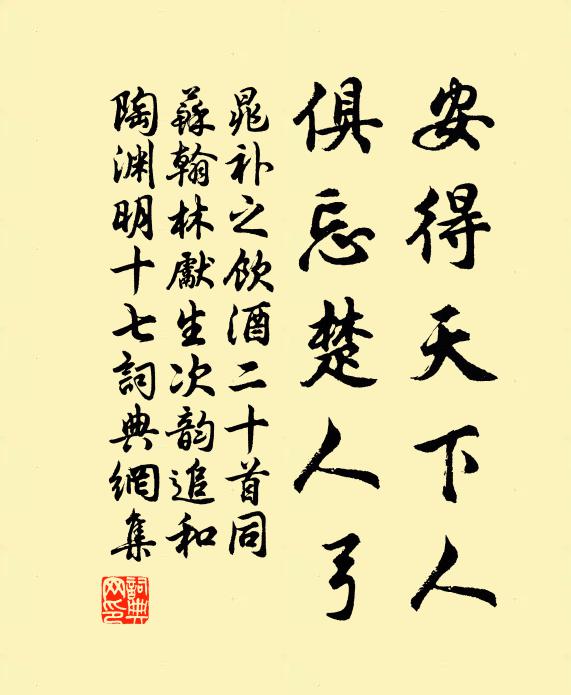 安得天下人
俱忘楚人弓
晁补之飲酒二十首同
蘇翰林獻生次韵追和
陶渊明十七詞典網集
詞典
网印